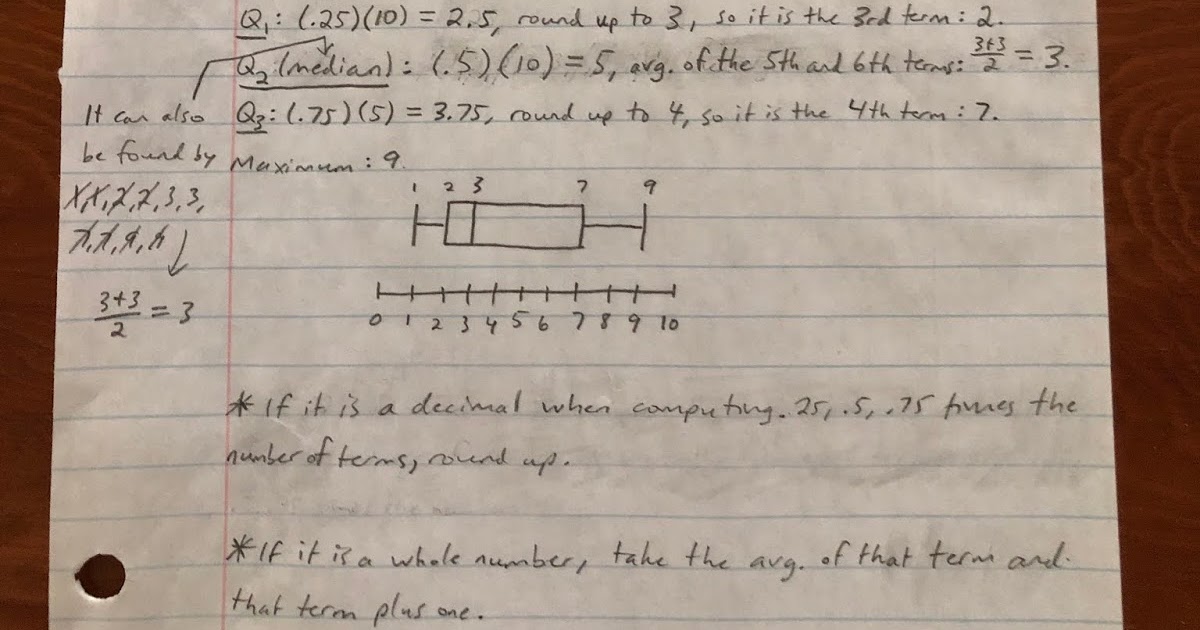 Q₁: (.25)(10) = 2.5, round up to 3, so it is the 3rd term: 2.
Q₂ (median): (.5)(10) = 5, avg. of the 5th and 6th terms: 3+3/2 = 3.
Q₃: (.75)(5) = 3.75, round up to 4, so it is the 4th term: 7.
Maximum: 9.
It can also
be found by
1, 1, 2, 2, 3, 3,
3+3/2 = 3
1 2 3 7 9
0 1 2 3 4 5 6 7 8 9 10
* If it is a decimal when computing .25, .5, .75 times the
number of terms, round up.
* If it is a whole number, take the avg. of that term and
that term plus one.